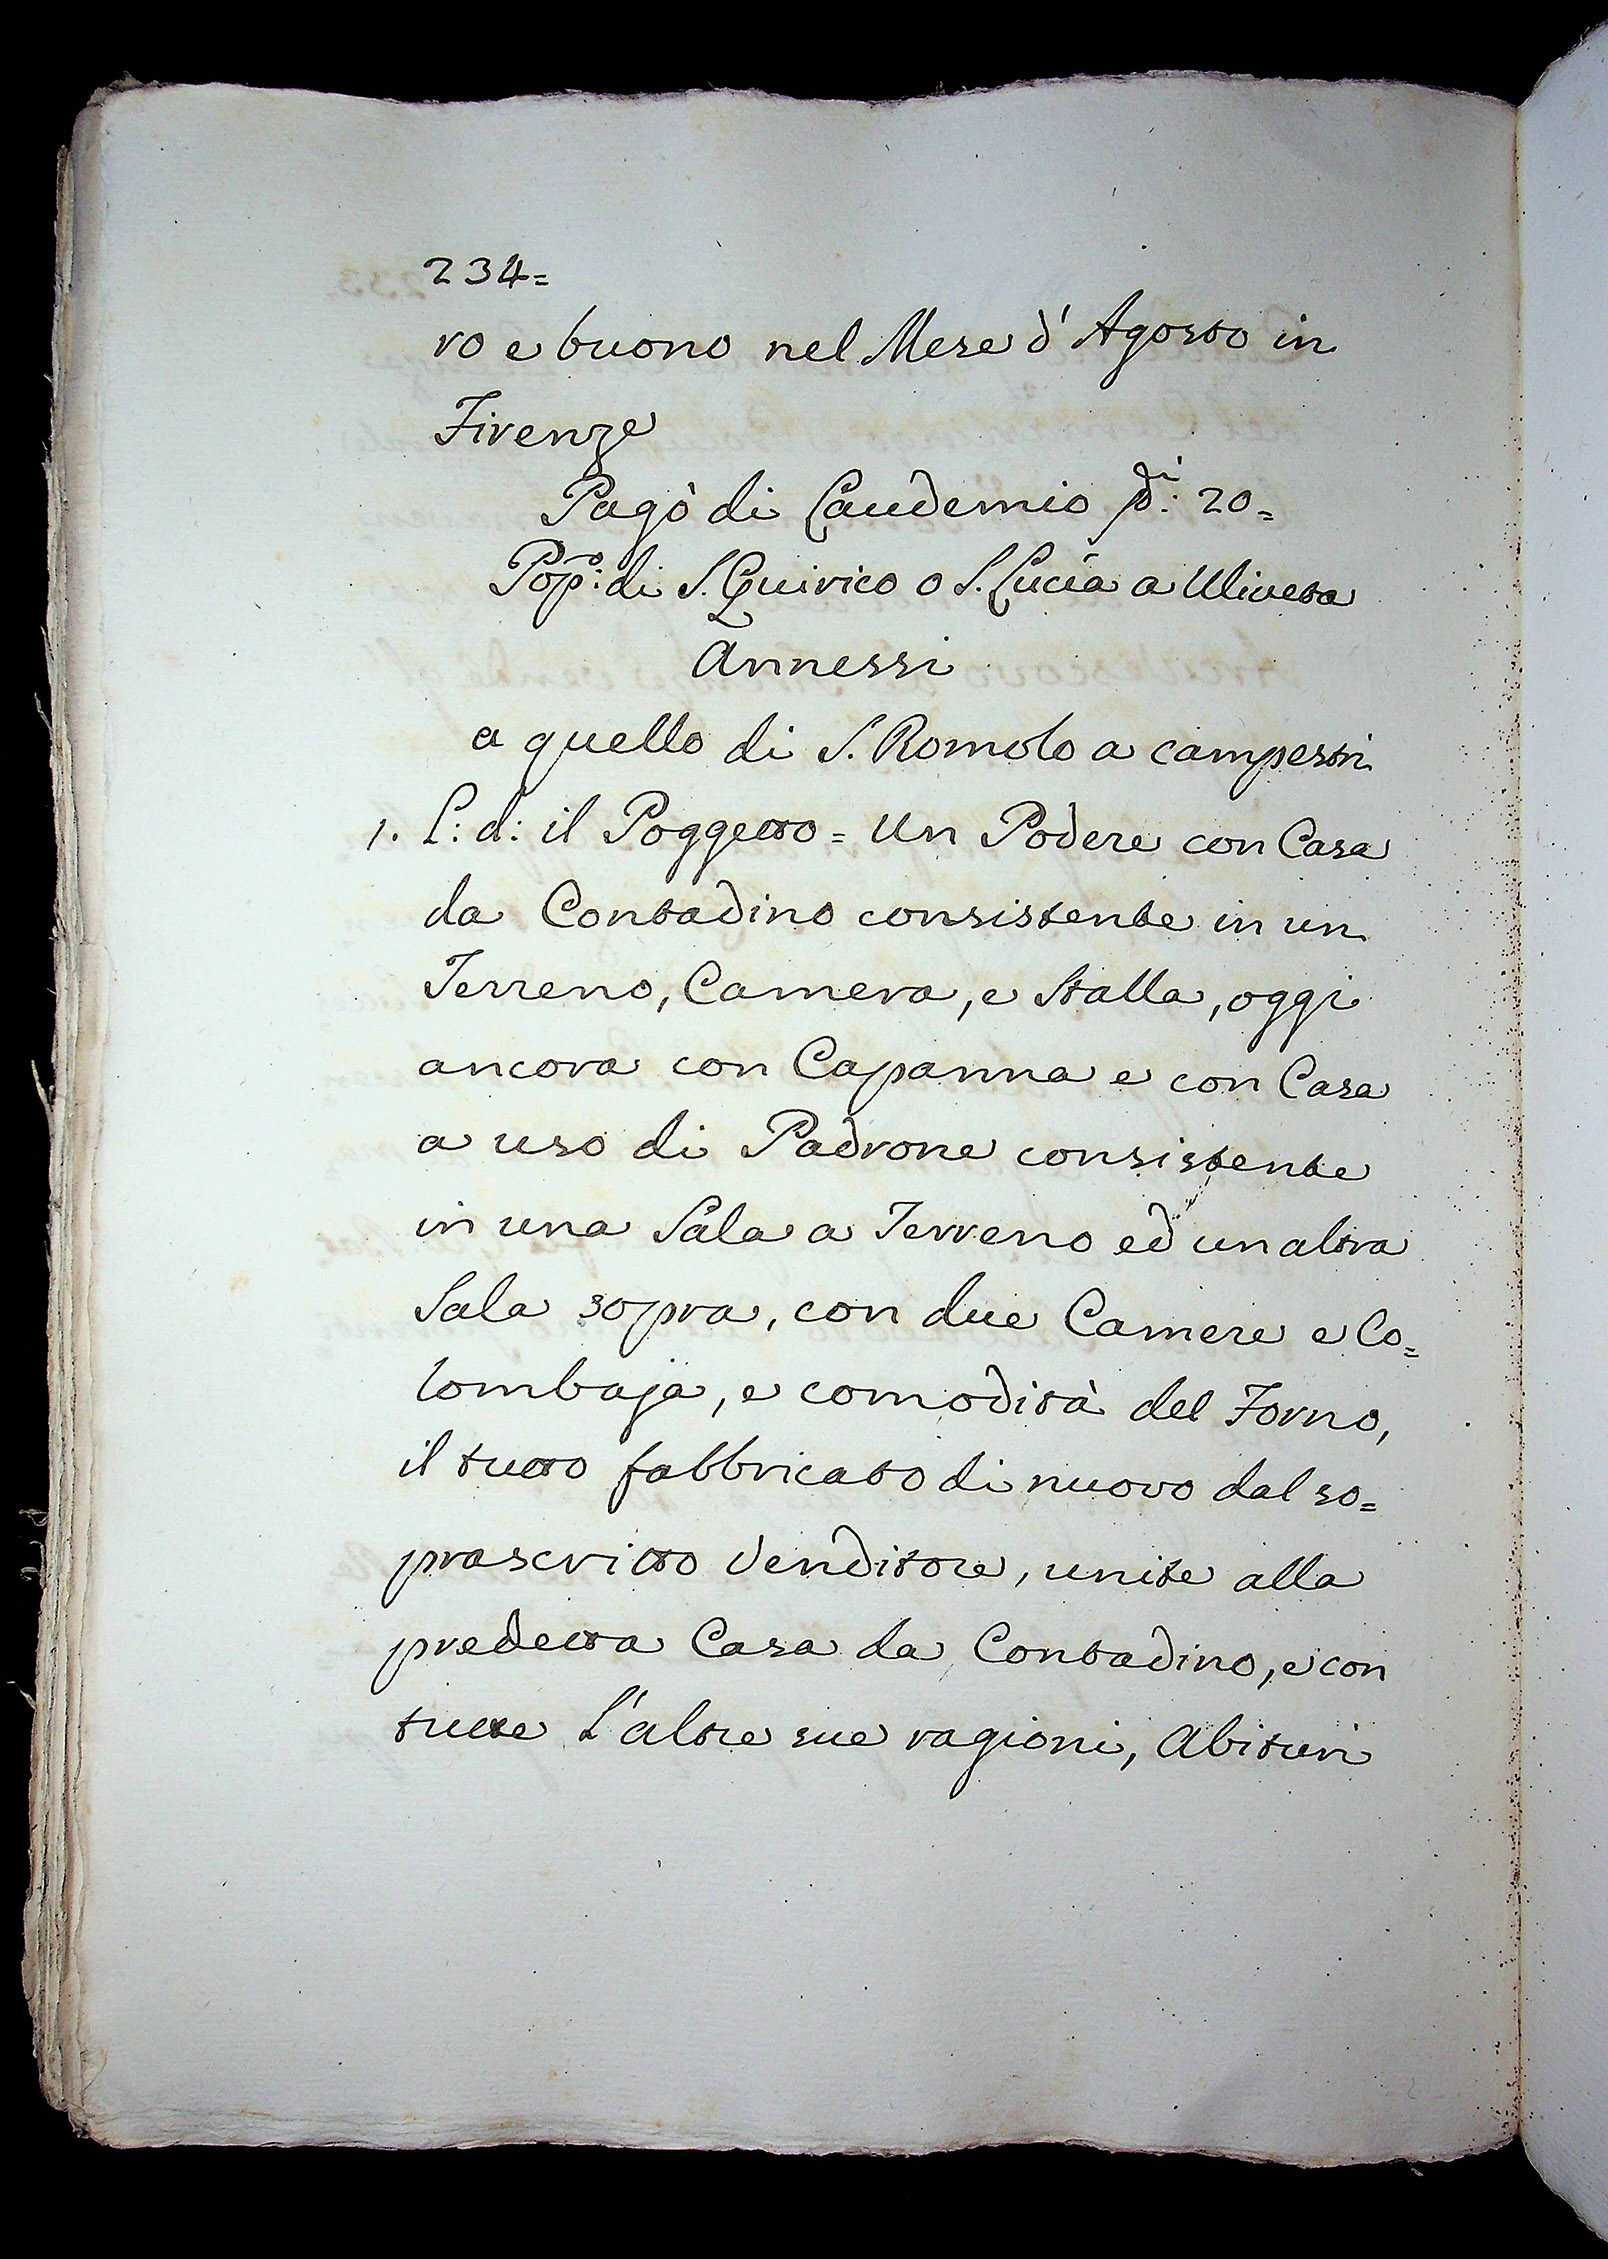 234=
ro e buono nel Mese d'Agosto in
Firenze
Pagò di Laudemio 20=
Pop:o di S. Quirico o S. Lucia a Uliveta
Annessi
a quello di S. Romolo a campestri
1. L: d: il Poggetto = Un Podere con Casa
da Contadino consistente in un
Terreno, Camera, e Stalla, oggi
ancora con Capanna e con Casa
a uso di Padrone consistente
in una Sala a Terreno ed un altra
Sala sopra, con due Camere e Co=
lombaja, e comodità del Forno,
il tutto fabbricato di nuovo dal so=
prascritto Venditore, unite alla
predetta Casa da Contadino, e con
tutte L'altre sue ragioni, Abituri